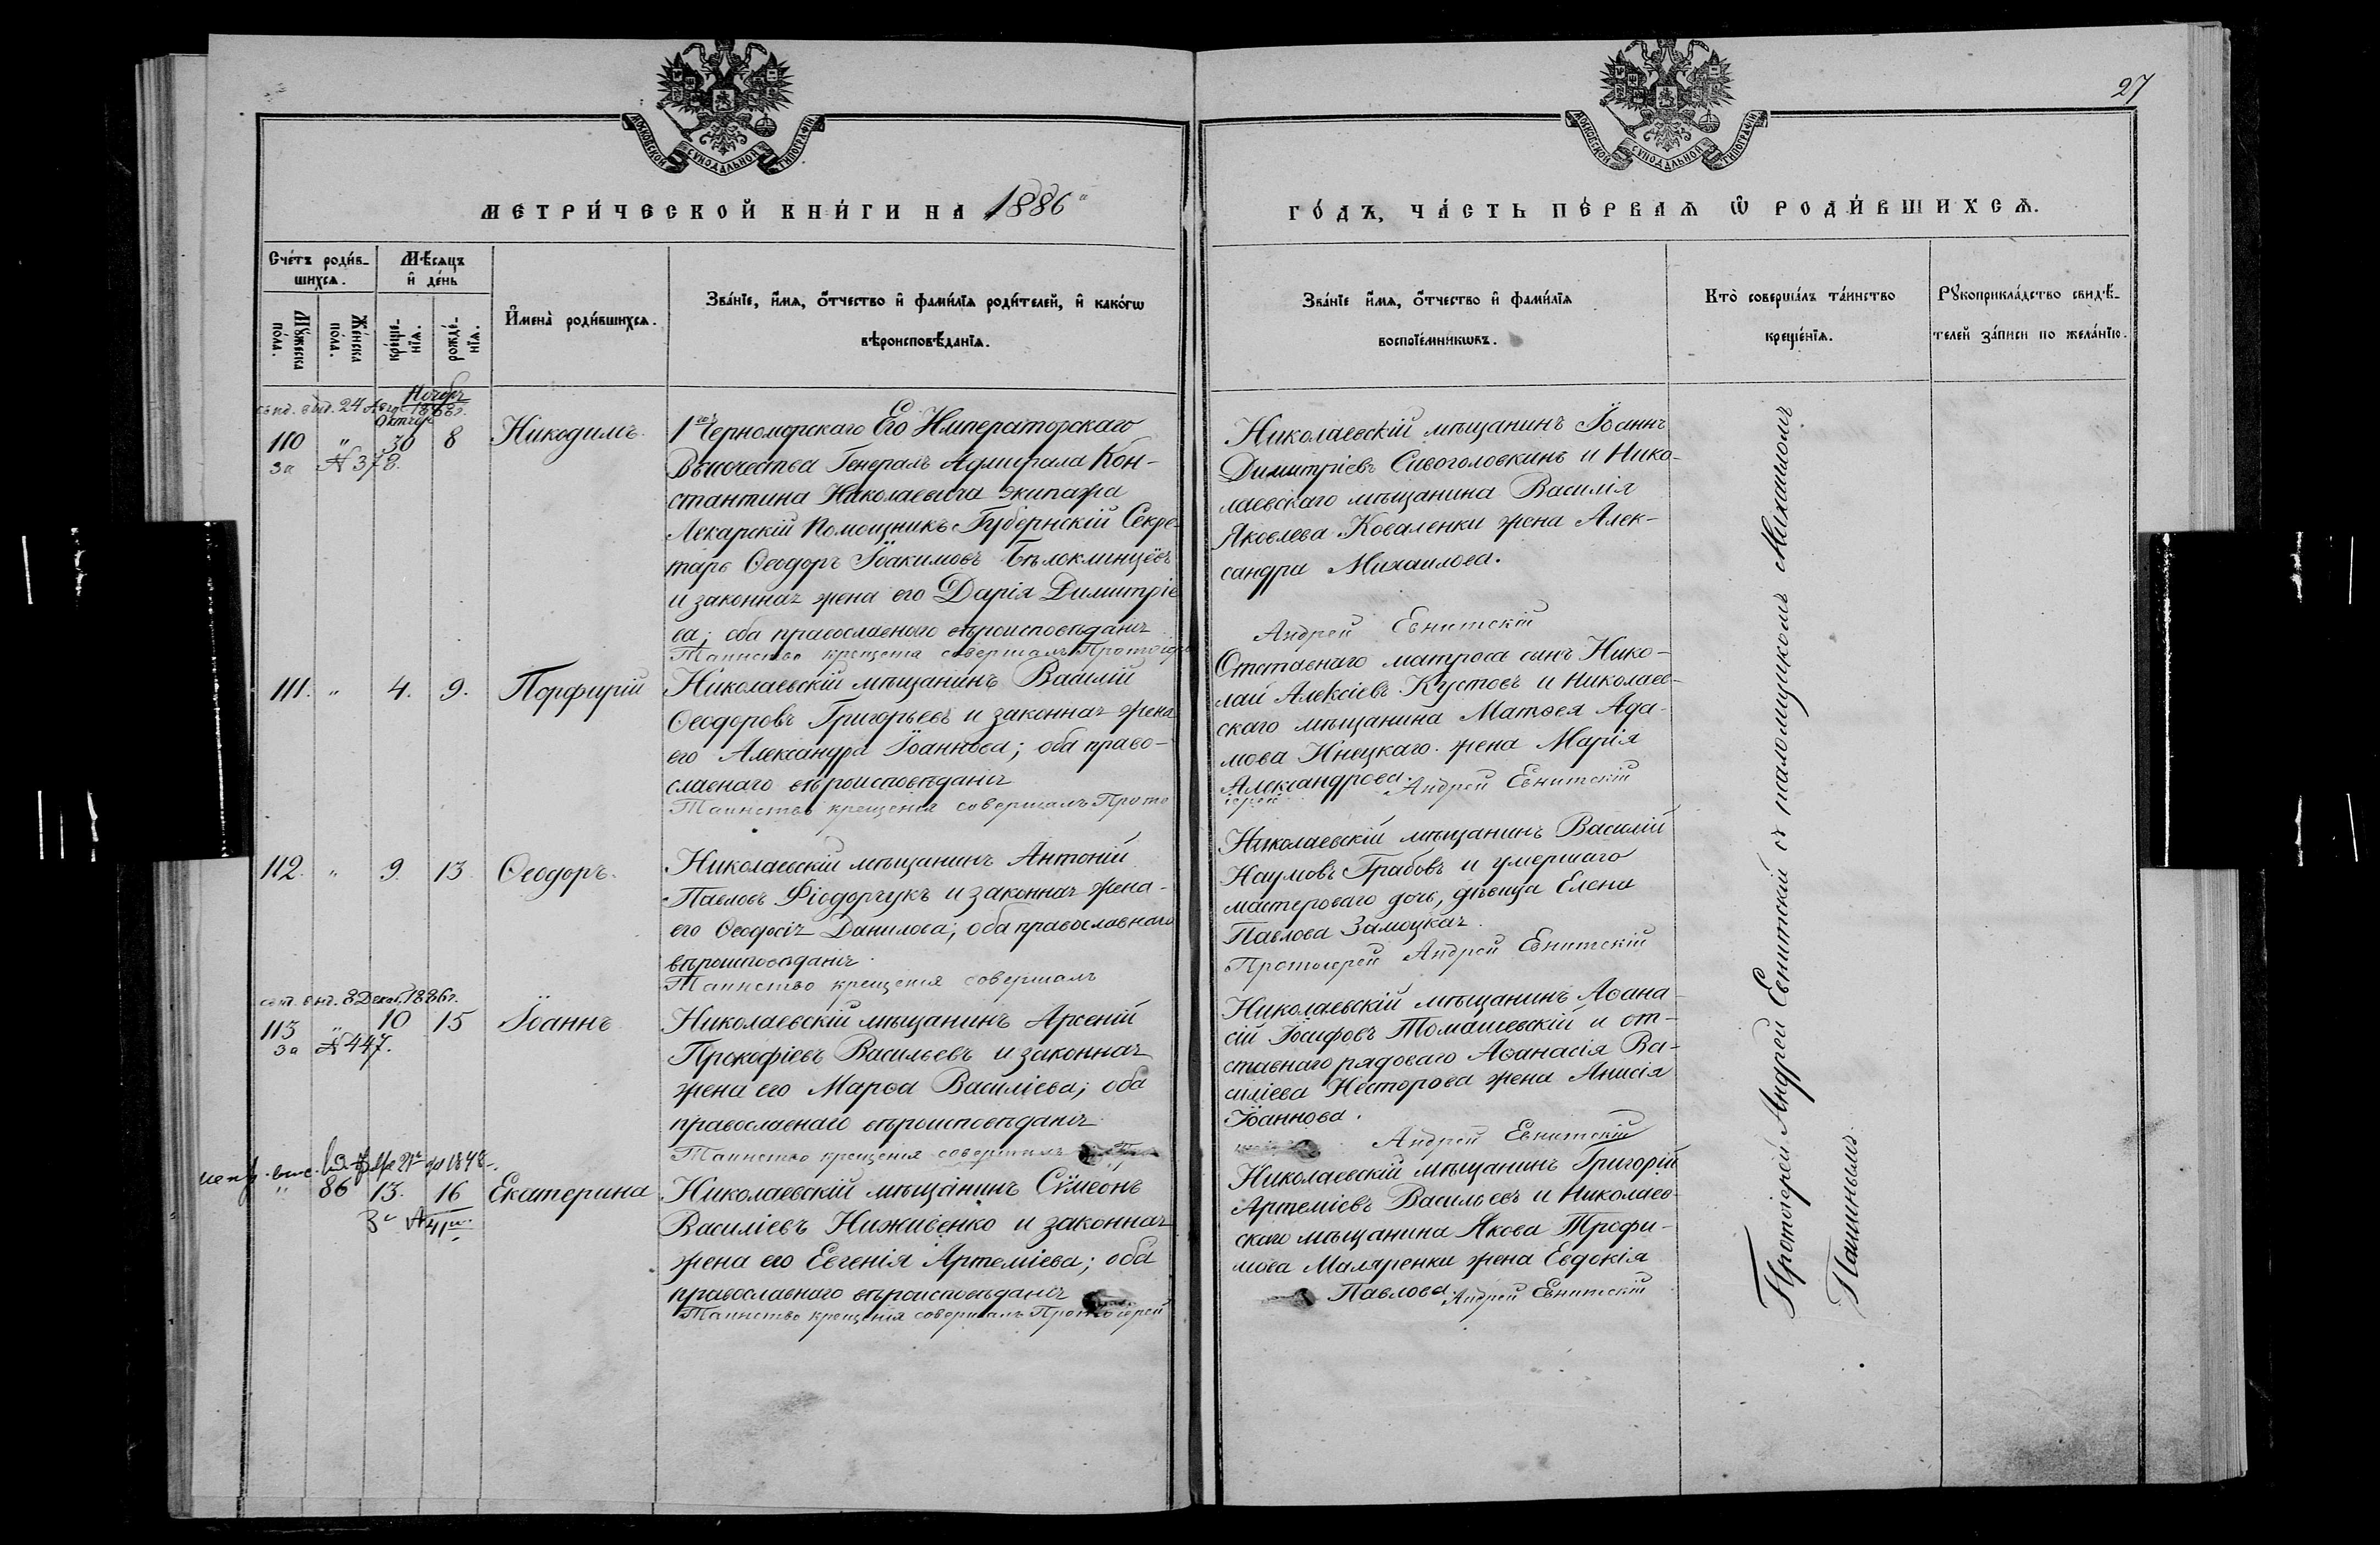 27
МОСКОВСКОЙ СѴНОДАЛЬНОЙ ТИПОГРАФІИ
МОСКОВСКОЙ СѴНОДАЛЬНОЙ ТИПОГРАФІИ
МЕТРИ́ЧЕСКОЙ КНИ́ГИ НА 1886
ГО́ДЪ, ЧА́СТЬ ПЕ́РВАѦ Ѡ РОДИ́ВШИХСѦ.
Сче́тъ роди́в-
шихсѧ.
Мѣ́сѧцъ
и҆ де́нь
Мꙋ́жеска
по́ла.
Же́нска
по́ла.
креще́-
нїѧ.
рожде́-
нїѧ.
И҆мена̀ роди́вшихсѧ.
Зва́нїе, и҆́мѧ, о҆́тчество и҆ фами́лїѧ роди́телей, и҆ како́гѡ
вѣроисповѣ́данїѧ.
Зва́нїе и҆́мѧ, о҆́тчество и҆ фами́лїѧ
воспрїе́мникѡвъ.
Кто̀ соверша́лъ та́инство
креще́нїѧ.
Рꙋкоприкла́дство свидѣ́-
телей за́писи по жела́нїю.
Ноябрь
24 Авг. 1888г.
Октябр
110 " 30 8 Никодимъ.
за № 378.
1го Черноморскаго Его Императорскаго
Высочества Генералъ Адмирала Кон-
стантина Николаевича экипажа
Лекарскій Помощникъ Губернскій Секре-
тарь Ѳеодоръ Іоакимовъ Бѣлоклинцевъ
и законная жена его Дарія Димитріе
ва; оба православного вѣроисповѣданія
Таинство крещенія совершалъ Протоіерей
Николаевскій мѣщанинъ Іоаннъ
Димитріевъ Сивоголовкинъ и Нико-
лаевскаго мѣщанина Василія
Яковлева Коваленки жена Алек-
сандра Михаилова.
Андрей Евнитскій
111. " 4. 9. Порфирій
Николаевскій мѣщанинъ Василій
Ѳеодоровъ Григорьевъ и законная жена
его Александра Іоаннова; оба право-
славнаго вѣроисповѣданія
Таинство крещенія совершалъ Прото
Отставнаго матроса сынъ Нико-
лай Алексіевъ Кустовъ и Николаев-
скаго мѣщанина Матѳея Ада-
мова Инецкаго жена Марія
Александрова.
іерей Андрей Евнитскій
112. " 9. 13 Ѳеодоръ.
Николаевскій мѣщанинъ Антоній
Павловъ Фіодорчукъ и законная жена
его Ѳеодосія Данилова; оба православнаго
вѣроисповѣданія.
Таинство крещенія совершалъ
Николаевскій мѣщанинъ Василій
Наумовъ Грабовъ и умершаго
мастероваго дочь, дѣвица Елена
Павлова Замоцкая.
Протоіерей Андрей Евнитскій
8 Декаб. 1886г.
113 " 10 15 Іоаннъ
за № 447.
Николаевскій мѣщанинъ Арсеній
Прокофіевъ Васильевъ и законная
жена его Марѳа Василіева; оба
православнаго вѣроисповѣданія
Таинство крещенія совершалъ
Николаевскій мѣщанинъ Аѳана-
сій Іосифовъ Томашевскій и от-
ставнаго рядоваго Аѳанасія Ва-
силіева Несторова жена Анисія
Іоаннова.
Андрей Евнитскій
" 86 13. 16 Екатерина
Николаевскій мѣщанинъ Сѵмеонъ
Василіевъ Ниживенко и законная
жена его Евгенія Артеміева; оба
православнаго вѣроисповѣданія
Таинство крещенія совершалъ Протоіерей
Николаевскій мѣщанинъ Григорій
Артеміевъ Васильевъ и Николаев-
скаго мѣщанина Якова Трофи-
мова Маляренки жена Евдокія
Павлова.
Андрей Евнитскій
Протоіерей Андрей Евнитскій съ псаломщикомъ Михаиломъ
Пашинымъ.